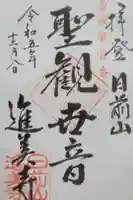 拝登 日前山
聖観世音
進美寺
令和五年
十二月八日